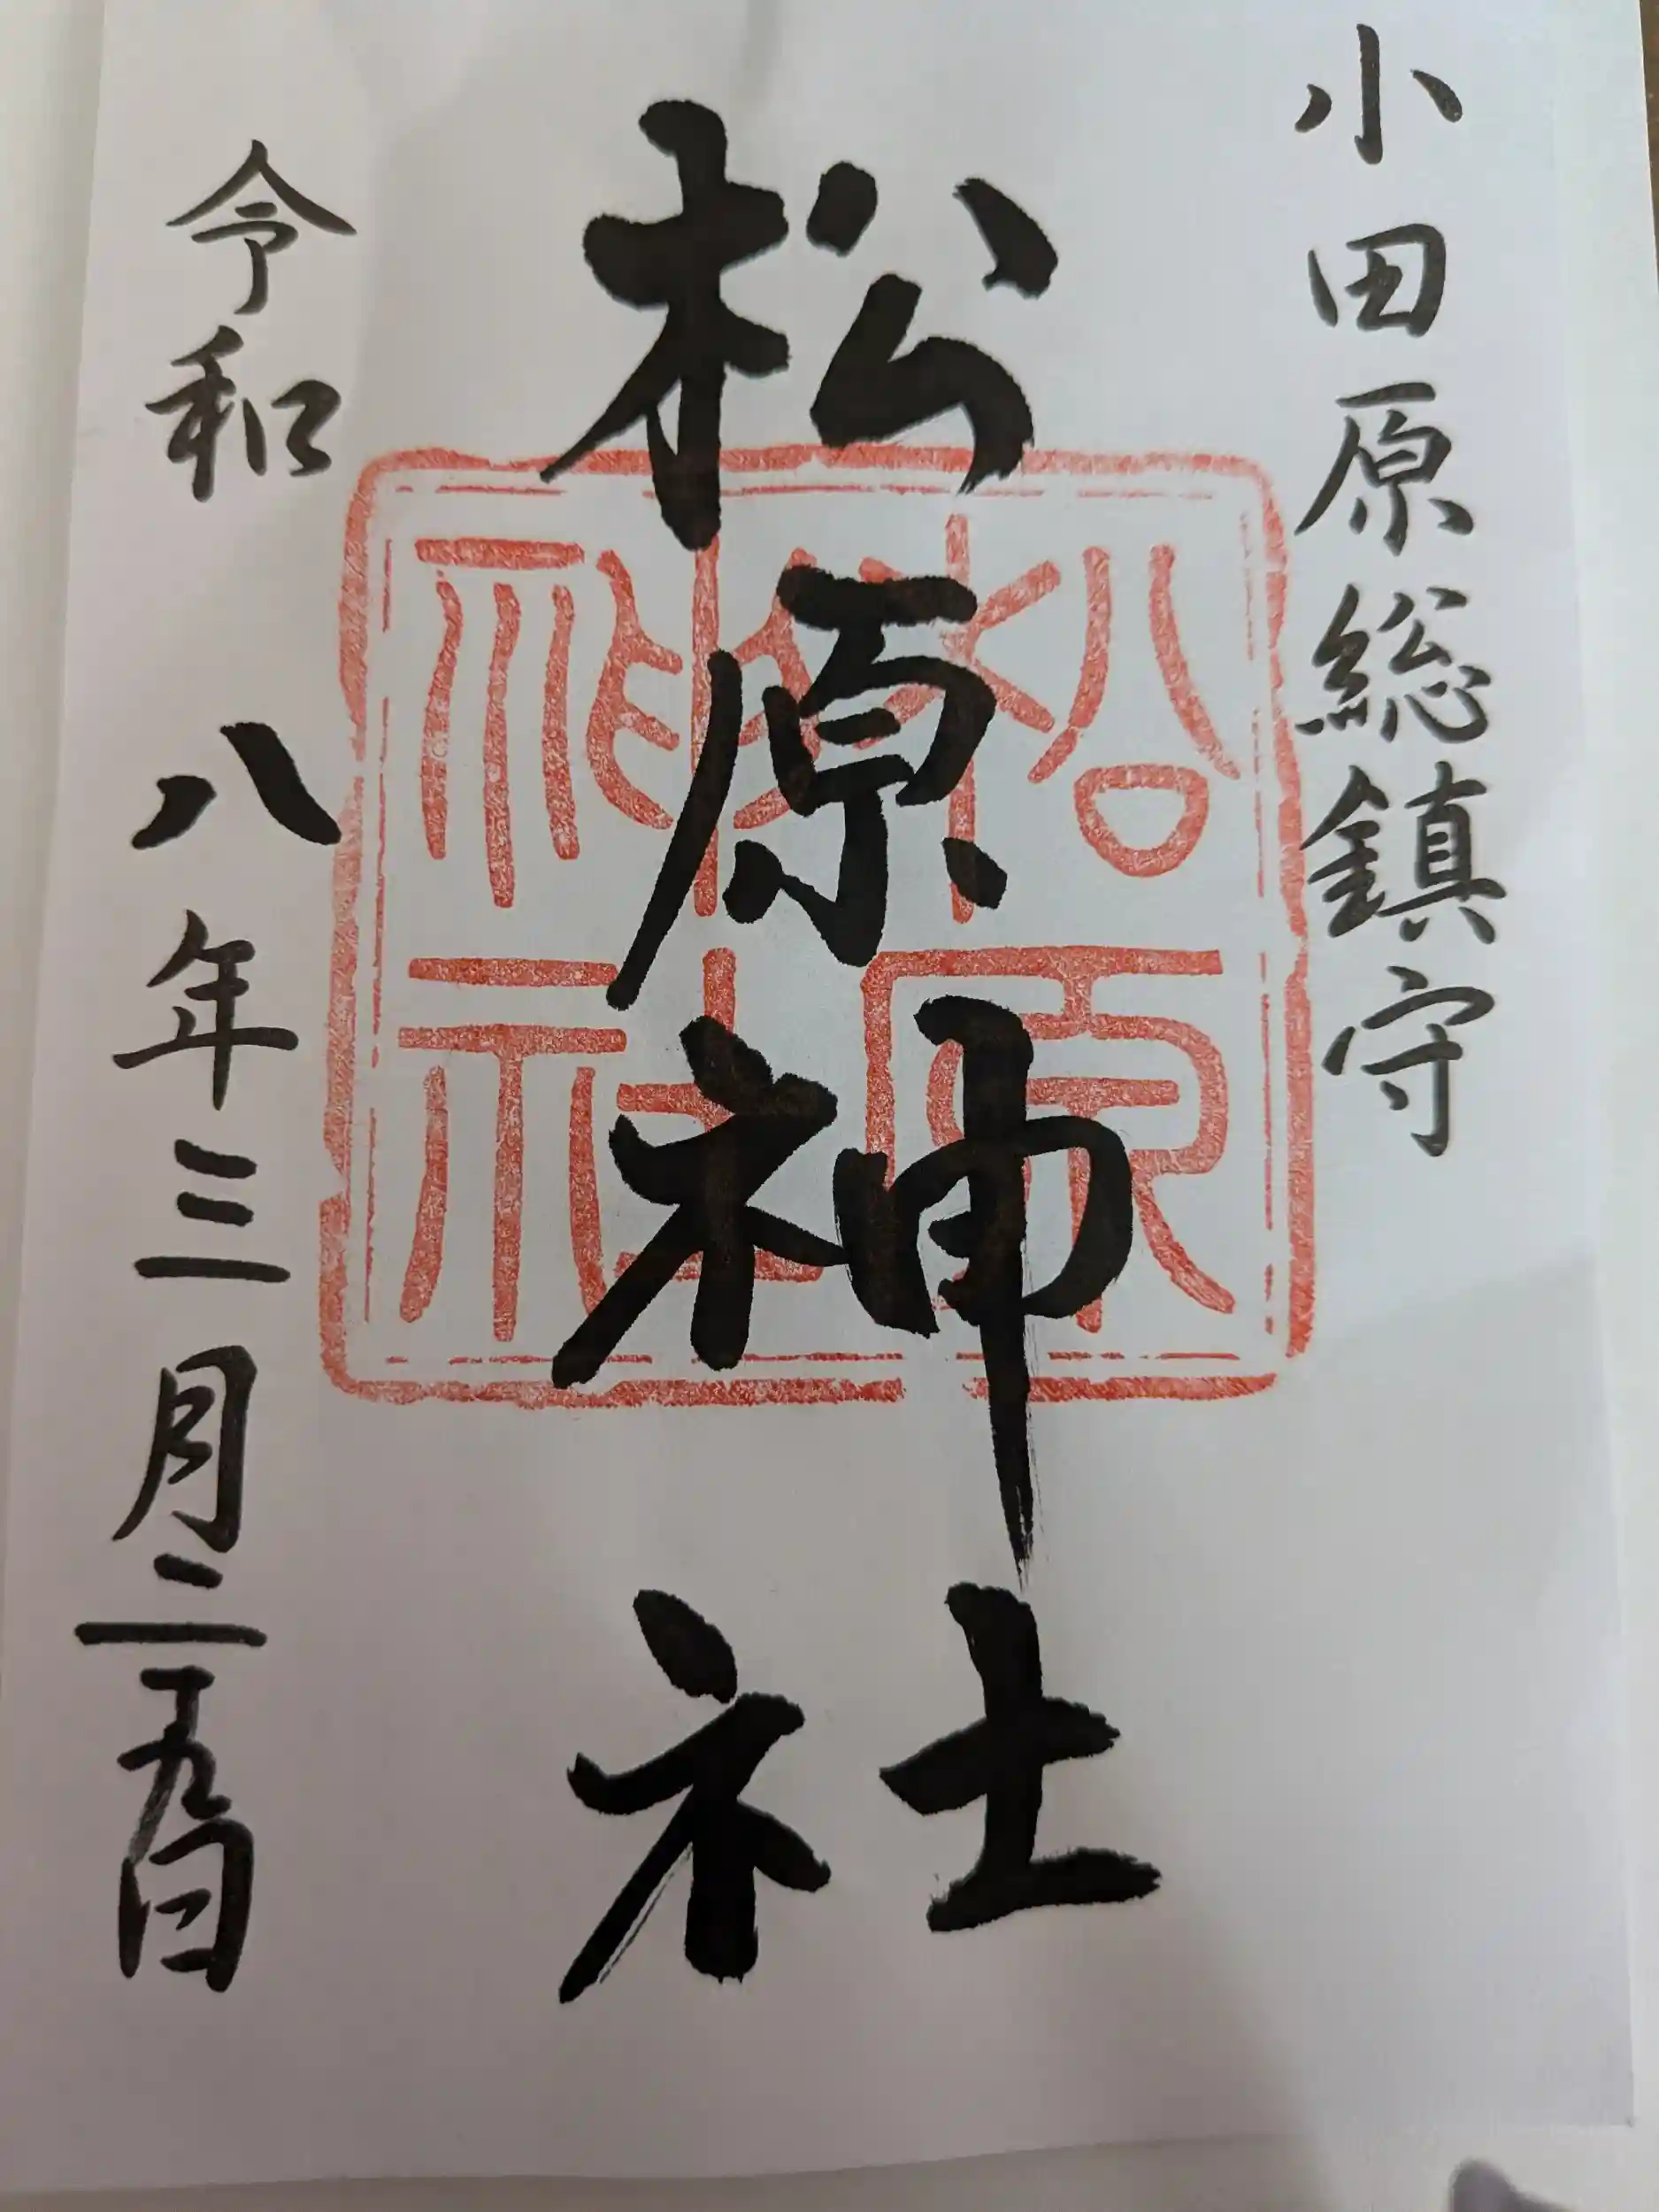 小田原総鎮守
松原神社
令和八年三月二十九日
松原
神社